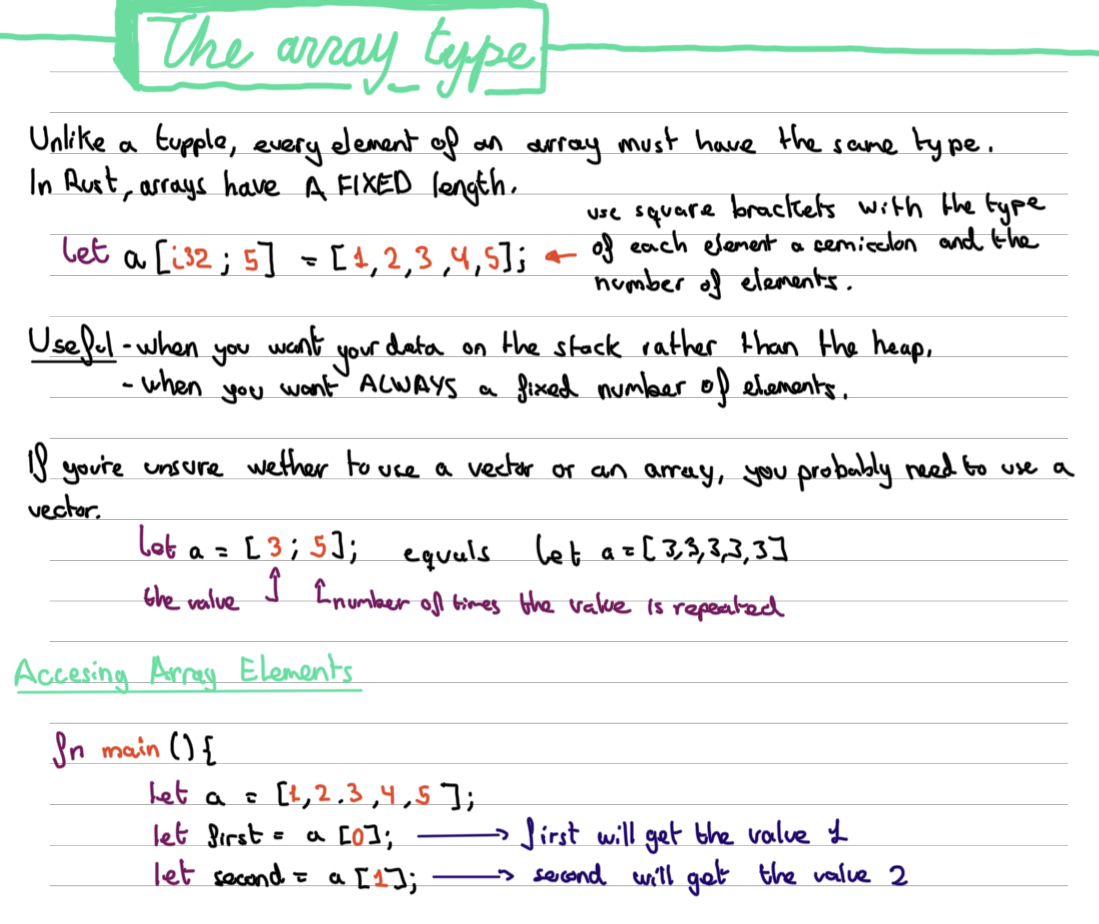 The array type
Unlike a tupple, every element of an array must have the same type.
In Rust, arrays have A FIXED length.
let a [i32 ; 5] = [1,2,3,4,5]; ← use square brackets with the type
of each element a semicolon and the
number of elements.
Useful - when you want your data on the stack rather than the heap,
- when you want ALWAYS a fixed number of elements.
If you're unsure wether to use a vector or an array, you probably need to use a
vector.
let a = [3 ; 5]; equals let a = [3,3,3,3,3]
the value ↑ ↑ number of times the value is repeated
Accesing Array Elements
fn main () {
let a = [1,2.3,4,5];
let first = a [0]; → first will get the value 1
let second = a [1]; → second will get the value 2